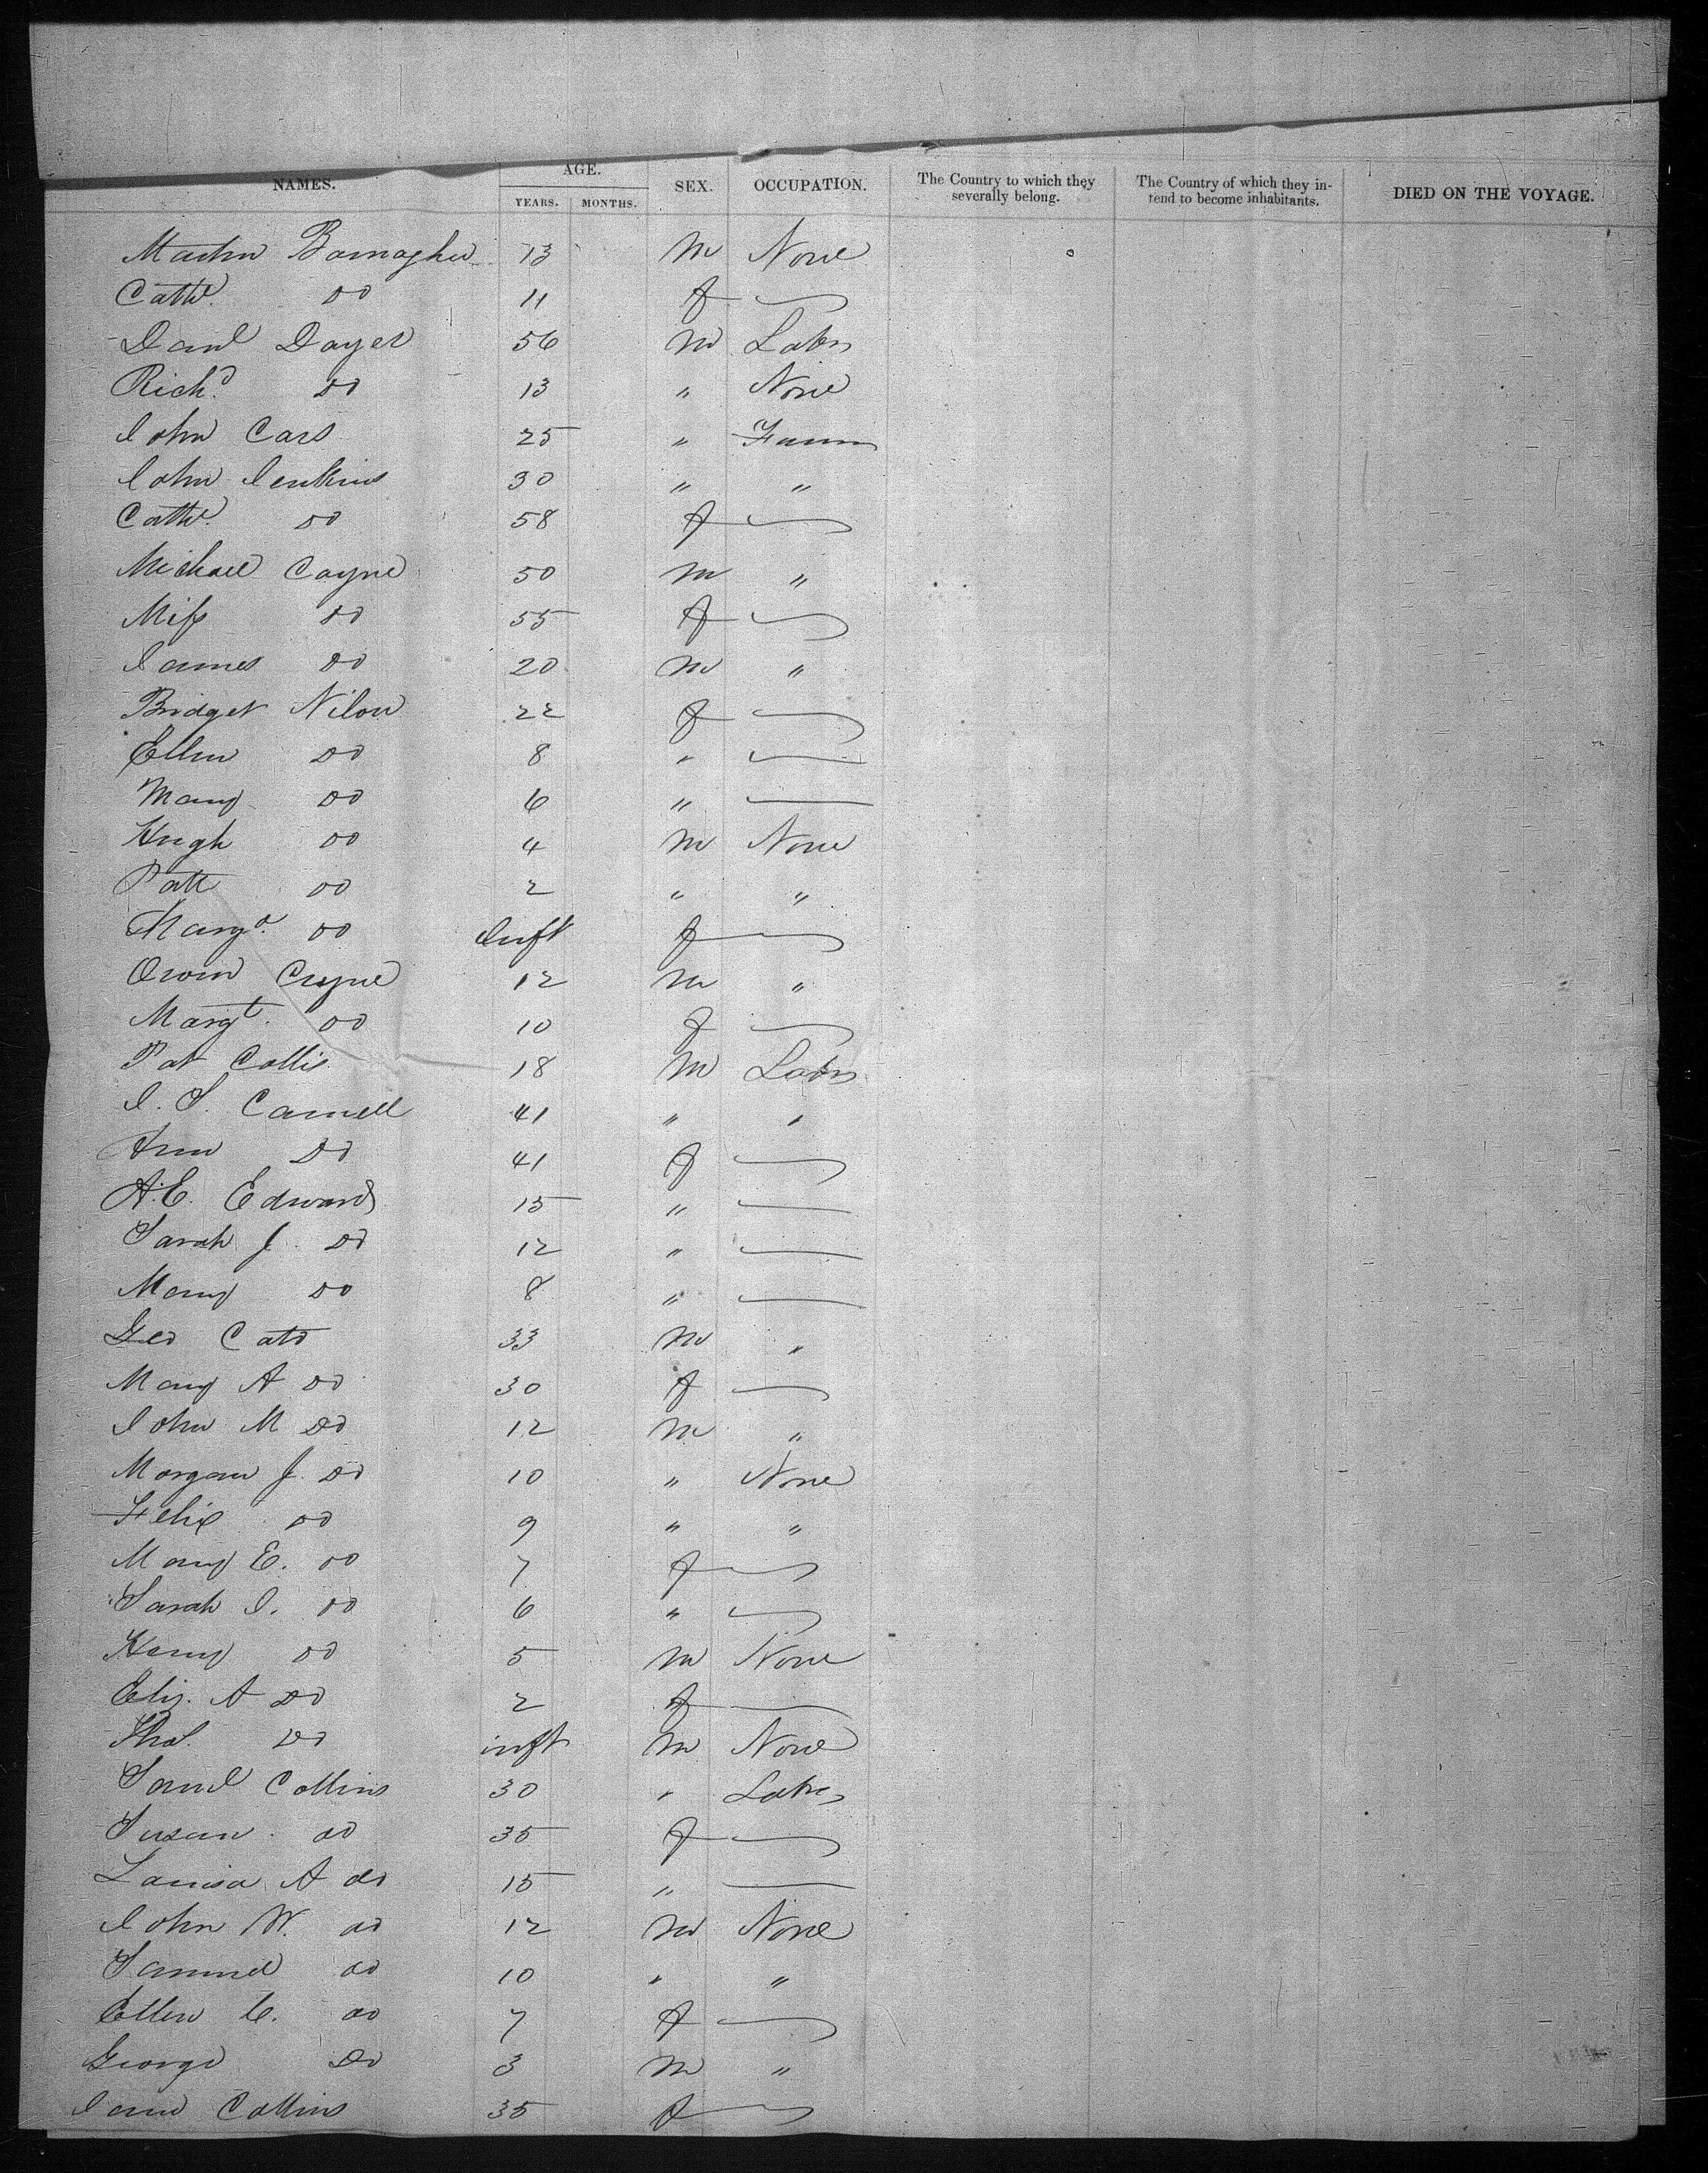 NAMES. AGE. SEX. OCCUPATION. The Country to which they severally belong. The Country of which they intend to become inhabitants. DIED ON THE VOYAGE.
YEARS. MONTHS.
Martin 13 M None
Cathe. Do 11 f
Danl Dayer 56 M Labr
Richd. Do 13 " None
John Cars 25 " Farmr
John Jenkins 30 " "
Cathe. Do 58 f
Michael Coyne 50 M "
Miss Do 55 f
James Do 20 M "
Bridget Nilon 22 f
Ellen Do 8 "
Mary Do 6 "
Hugh Do 4 M None
Patt Do 2 " "
Do Inft f
Owen 12 M "
Margt. Do 10 f
Pat Collis 18 M Labr
J. S. Carnell 41 " "
Ann Do 41 f
A.E. Edwards 15 "
Sarah J. Do 12 "
Mary Do 8 "
Geo Cato 33 M "
Mary A Do 30 f
John M Do 12 M "
Morgan J. Do 10 " None
Felix Do 9 " "
Mary E. Do 7 f
Sarah I. Do 6 "
Henry Do 5 M None
Eliz. A Do 2 f
Thos. Do inft M None
Saml Collins 30 " Labr
Susan Do 35 f
Louisa A do 15 "
John W. do 12 M None
Samuel do 10 " "
Ellen C. do 7 f
George Do 3 M "
Jane Collins 35 f